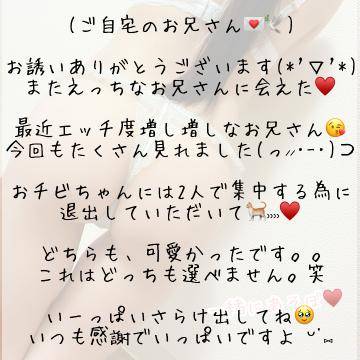 (ご自宅のお兄さん💌🕊️)
お誘いありがとうございます(*'▽'*)
またえっちなお兄さんに会えた♥️
最近エッチ度増し増しなお兄さん😘
今回もたくさん見れました(っ〃･-･)⊃
おチビちゃんには2人で集中する為に
退出していただいて🐈»»♥️
どちらも、可愛かったです。。
これはどっちも選べません。笑
いーっぱいさらけ出してね🥹
いつも感謝でいっぱいですよ ᵕ̈ ⑅